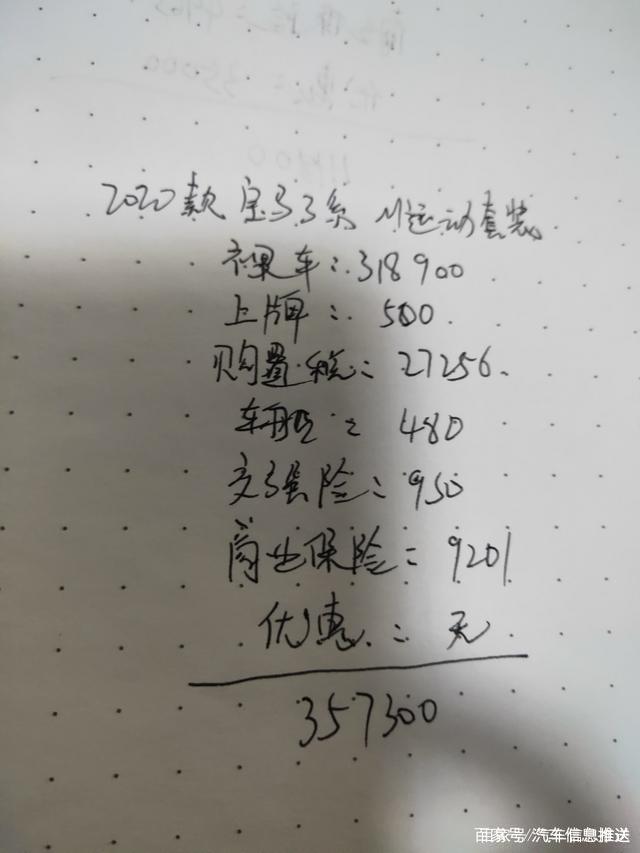 商业保险：4463
优惠：35000
2020款宝马3系 M运动套装
裸车：318900
上牌：500
购置税：27256
车船：480
交强险：950
商业保险：9201
优惠：无
357300
百家号/汽车信息推送